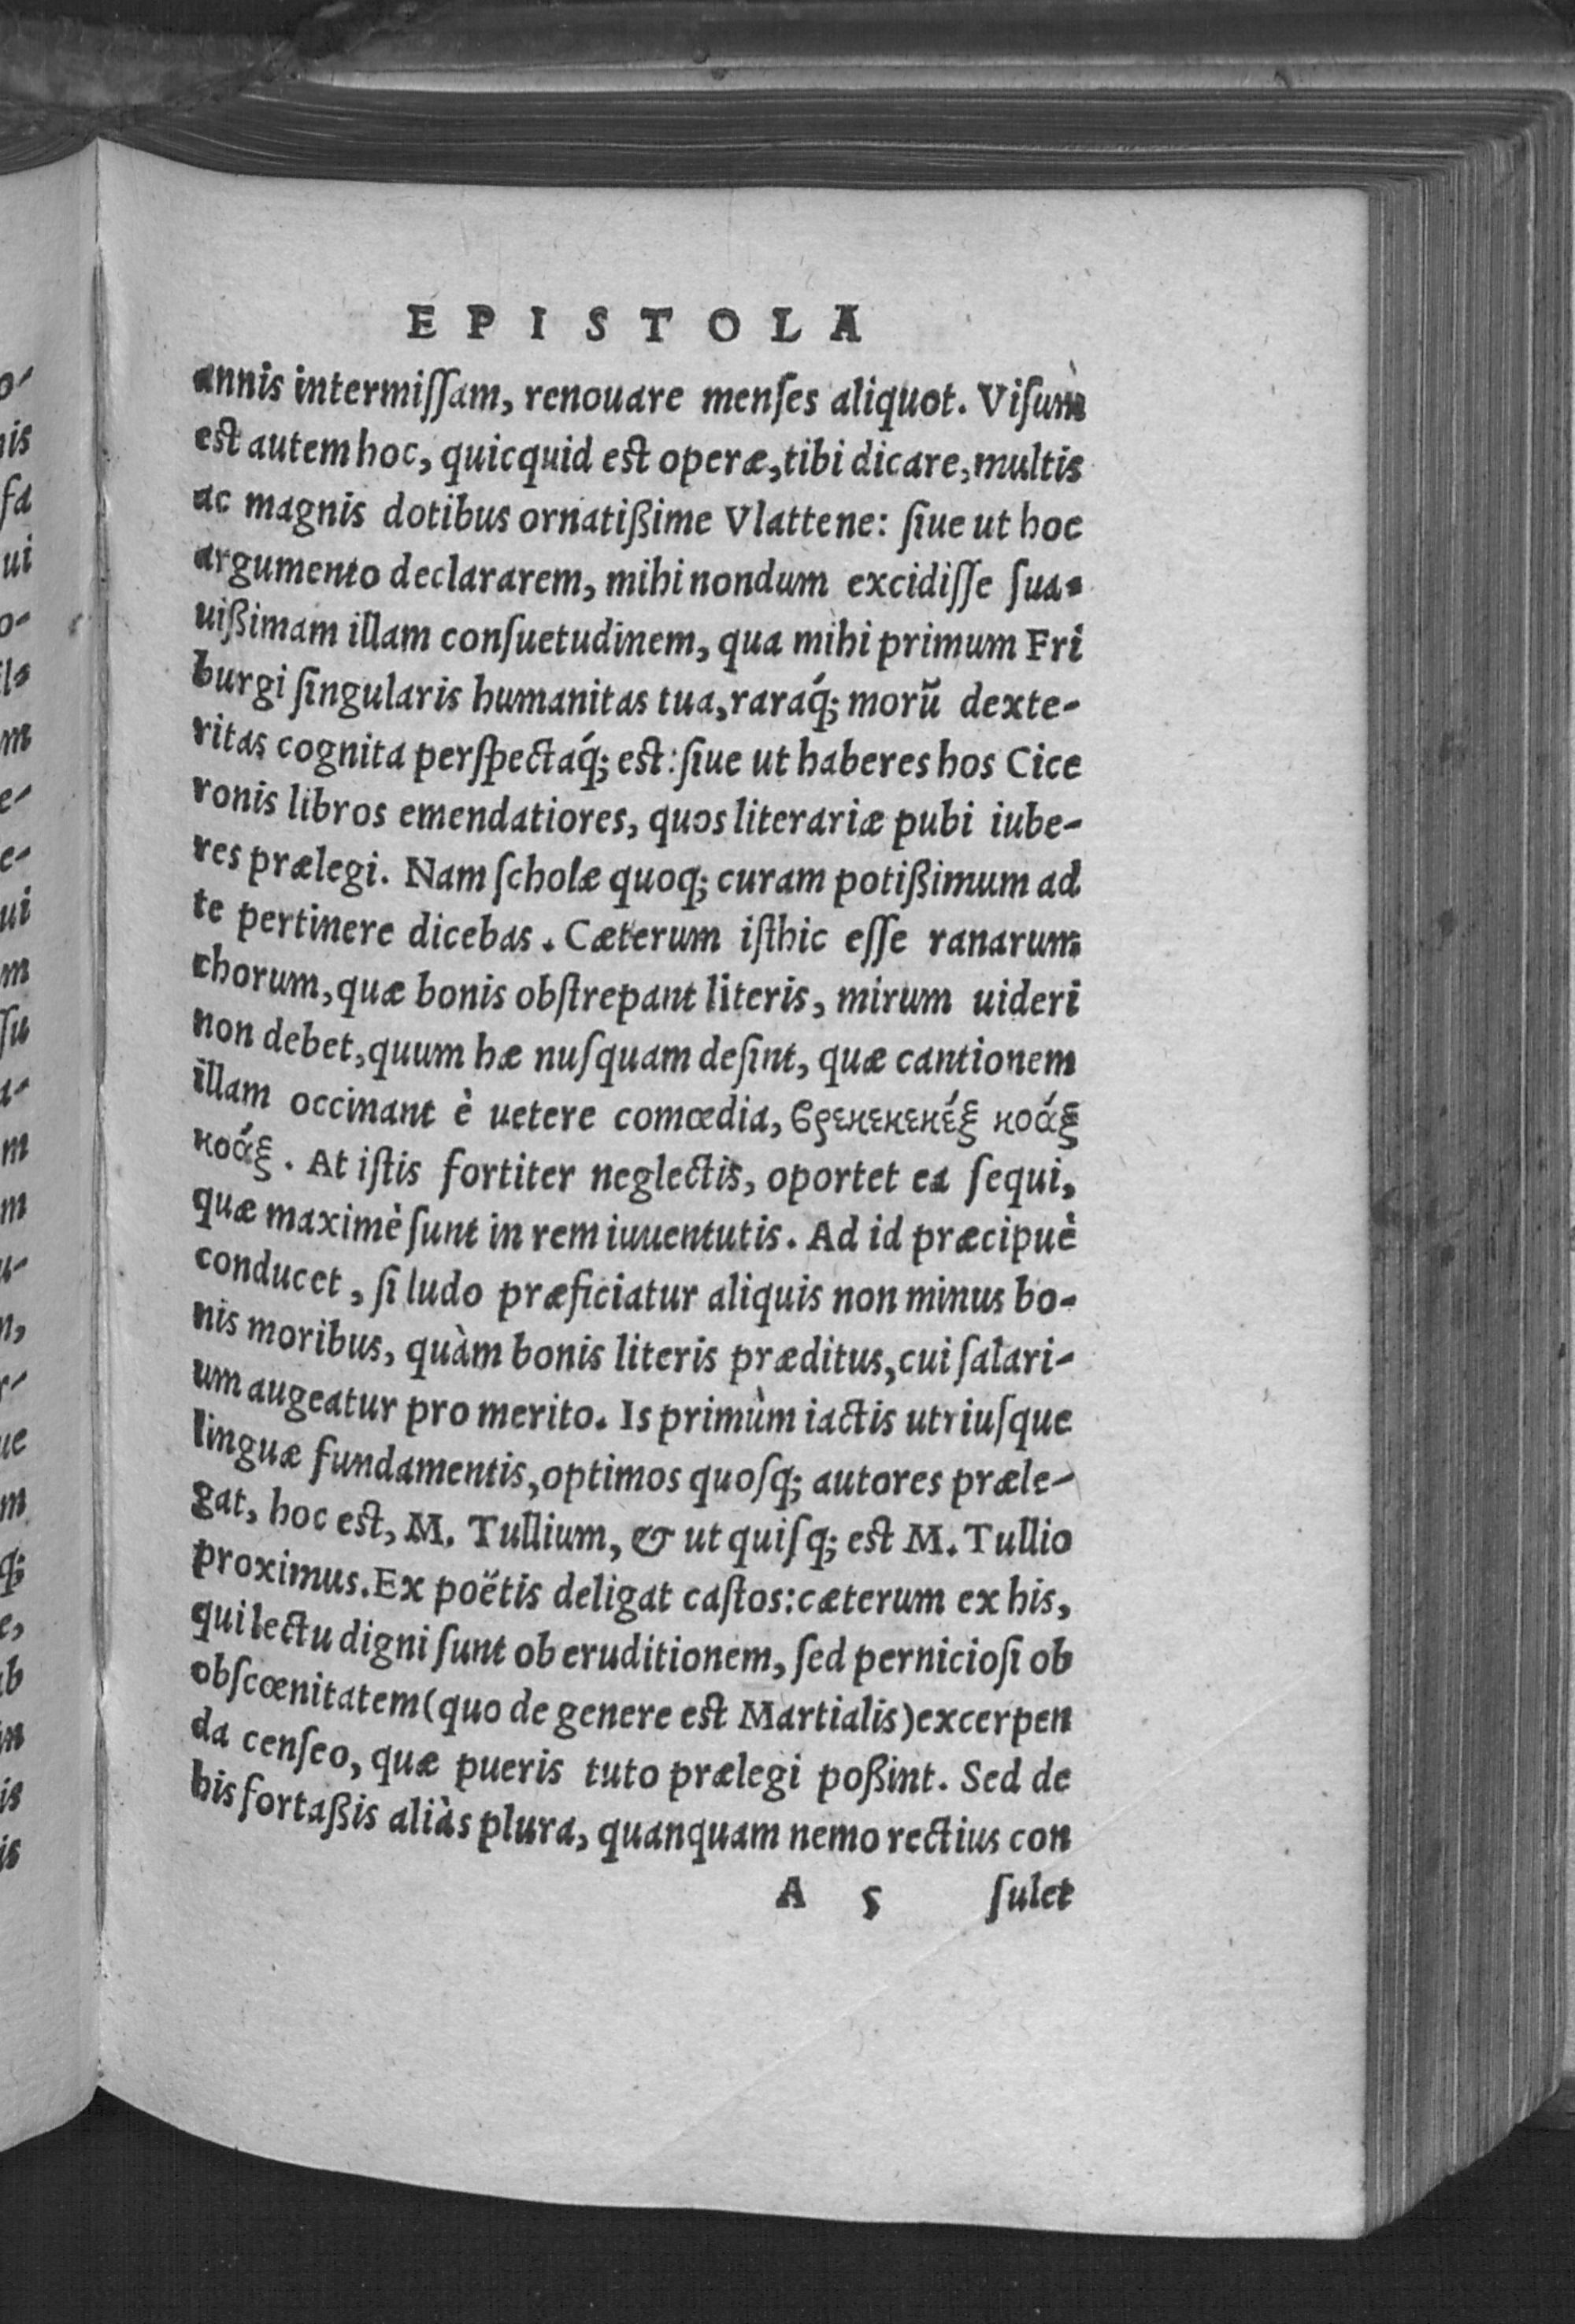 EPISTOLA
annis intermiſſam, renouare menſes aliquot. Viſum
eſt autem hoc, quicquid eſt operæ, tibi dicare, multis
ac magnis dotibus ornatißime Vlattene: ſiue ut hoc
argumento declararem, mihi nondum excidiſſe ſua-
uißimam illam conſuetudinem, qua mihi primum Fri
burgi ſingularis humanitas tua, raraq́; morũ dexte-
ritas cognita perſpectaq́; eſt: ſiue ut haberes hos Cice
ronis libros emendatiores, quos literariæ pubi iube-
res prælegi. Nam ſcholæ quoq; curam potißimum ad
te pertinere dicebas. Cæterum iſthic eſſe ranarum
chorum, quæ bonis obſtrepant literis, mirum uideri
non debet, quum hæ nuſquam deſint, quæ cantionem
illam occinant è uetere comœdia, βρεκεκεκέξ κοάξ
κοάξ. At iſtis fortiter neglectis, oportet ea ſequi,
quæ maximè ſunt in rem iuuentutis. Ad id præcipuè
conducet, ſi ludo præficiatur aliquis non minus bo-
nis moribus, quàm bonis literis præditus, cui ſalari-
um augeatur pro merito. Is primùm iactis utriuſque
linguæ fundamentis, optimos quoſq; autores præle-
gat, hoc eſt, M. Tullium, & ut quiſq; eſt M. Tullio
proximus. Ex poëtis deligat caſtos: cæterum ex his,
qui lectu digni ſunt ob eruditionem, ſed pernicioſi ob
obſcœnitatem (quo de genere eſt Martialis) excerpen
da cenſeo, quæ pueris tuto prælegi poßint. Sed de
his fortaßis aliàs plura, quanquam nemo rectius con
A 5 ſulet